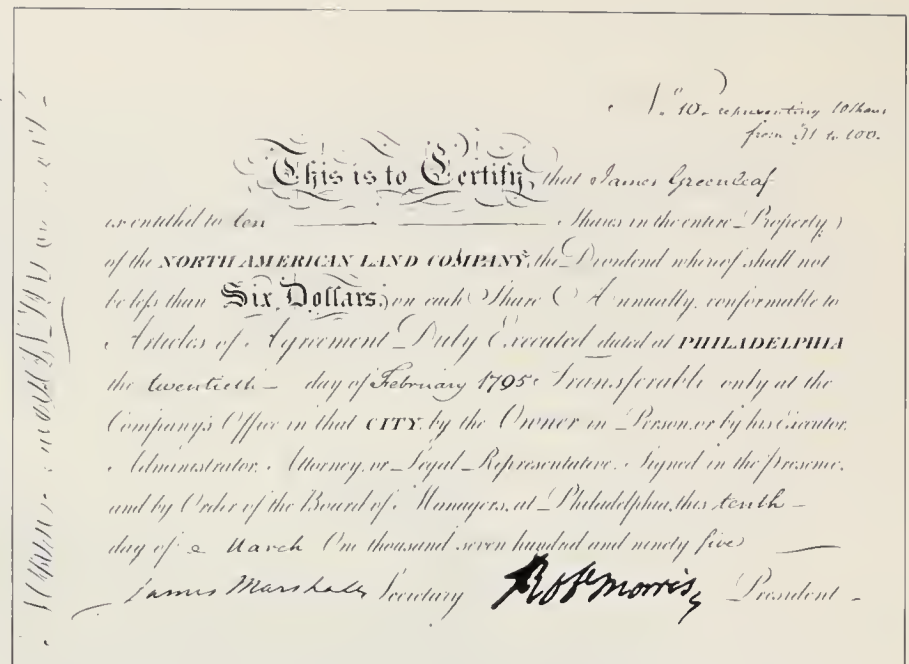 No. 10. representing 10 Shares
from 91 to 100.
This is to Certify, that James Greenleaf
is entitled to ten Shares in the entire Property
of the NORTH AMERICAN LAND COMPANY, the Dividend whereof shall not
be less than Six Dollars, on each Share Annually, conformable to
Articles of Agreement Duly Executed dated at PHILADELPHIA
the twentieth day of February 1795. Transferable only at the
Company's Office in that CITY, by the Owner in Person, or by his Executor,
Administrator, Attorney, or Legal Representative. Signed in the presence,
and by Order of the Board of Managers, at Philadelphia, this tenth
day of March One thousand seven hundred and ninety five
James Marshall Secretary Robt Morris, President